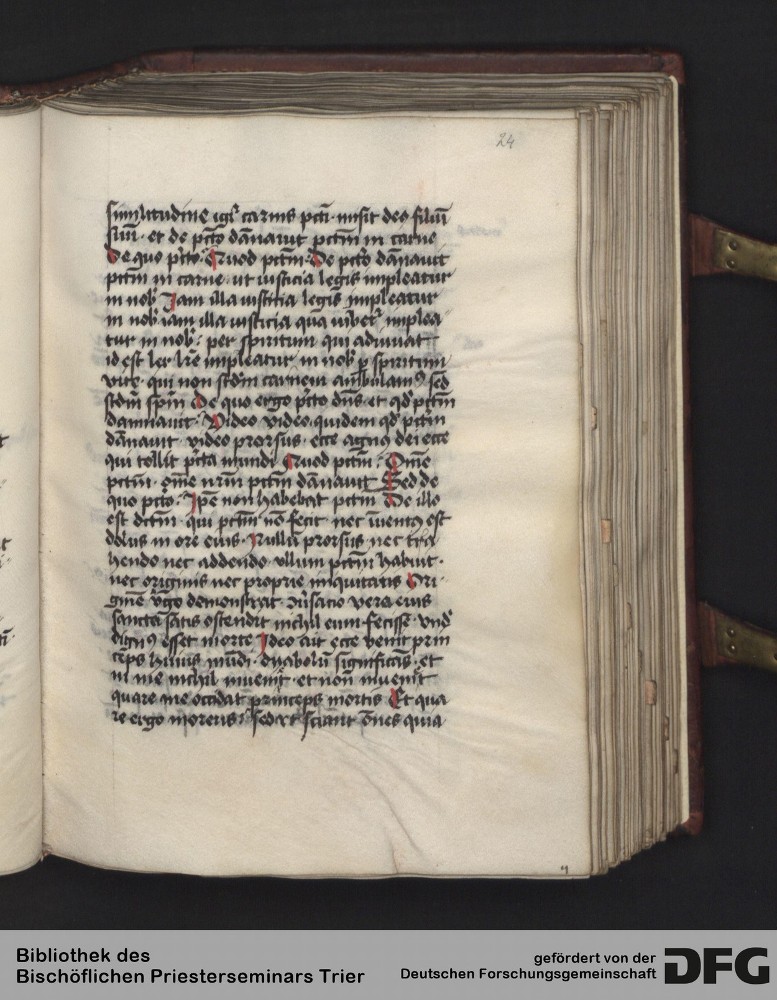 24
similitudine igr̄ carnis pctī · misit deꝰ filiū
suū · et de pctō dāmnauit pctm̄ in carne
De quo pctō · Quod pctm̄ · De pctō dāmnauit
pctm̄ in carne · ut iusticia legis impleatur
in nob̄ Iam illa iusticia legis impleatur
in nob̄ iam illa iusticia quā iubet᷑ implea
tur in nob̄ : per spiritum qui adiuuat
id est lex lr̄e impleatur in nob̄ ꝑ spiritum
vite · qui non scdm̄ carnem ambulamꝰ sed
scdm̄ spm̄ De quo ergo pctō dn̄s · et qd̓ pctm̄
damnauit · Video video quidem qd̓ pctm̄
dāmnauit video prorsus · ecce agnus dei ecce
qui tollit pctā mundi Quod pctm̄ : Om̄e
pctm̄ · om̄e nr̄m pctm̄ dāmnauit Sed de
quo pctō : Ipē non habebat pctm̄ De illo
est dictm̄ · qui pctm̄ nō fecit nec īuentꝰ est
dolus in ore eius · Nullū prorsus nec tra
hendo nec addendo · ullum pctm̄ habuit ·
nec originis nec proprie iniquitatis Ori
ginē v̄go demonstrat ·
sancta satis ostendit nichil eum fecisse · vnd̓
dignꝰ esset morte Ideo ait ecce venit prin
ceps huius mūdi · dyabolū significās · et
in me nichil inuenit · et non inuenit
quare me occidat princeps mortis Et qua
re ergo moreris : sed vt sciant om̄es quia
Bibliothek des
Bischöflichen Priesterseminars Trier
gefördert von der
Deutschen Forschungsgemeinschaft
DFG